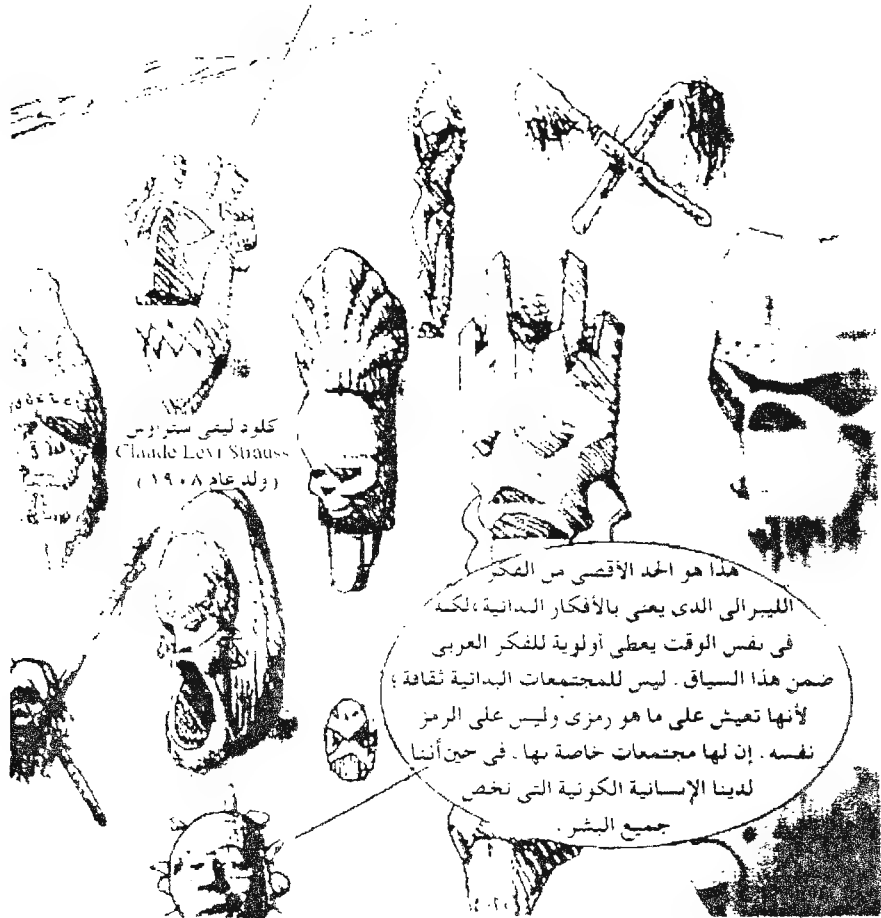 كلود ليفي ستراوس
Claude Levi Strauss
( ولد عام ١٩٠٨ )
هذا هو الحد الأقصى من الفكر
الليبرالى الذى يعنى بالأفكار البدائية ، لكنه
فى نفس الوقت يعطى أولوية للفكر العربى
ضمن هذا السياق . ليس للمجتمعات البدائية ثقافة ؛
لأنها تعيش على ما هو رمزى وليس على الرمز
نفسه . إن لها مجتمعات خاصة بها . فى حين أننا
لدينا الإنسانية الكونية التى تخص
جميع البشر .